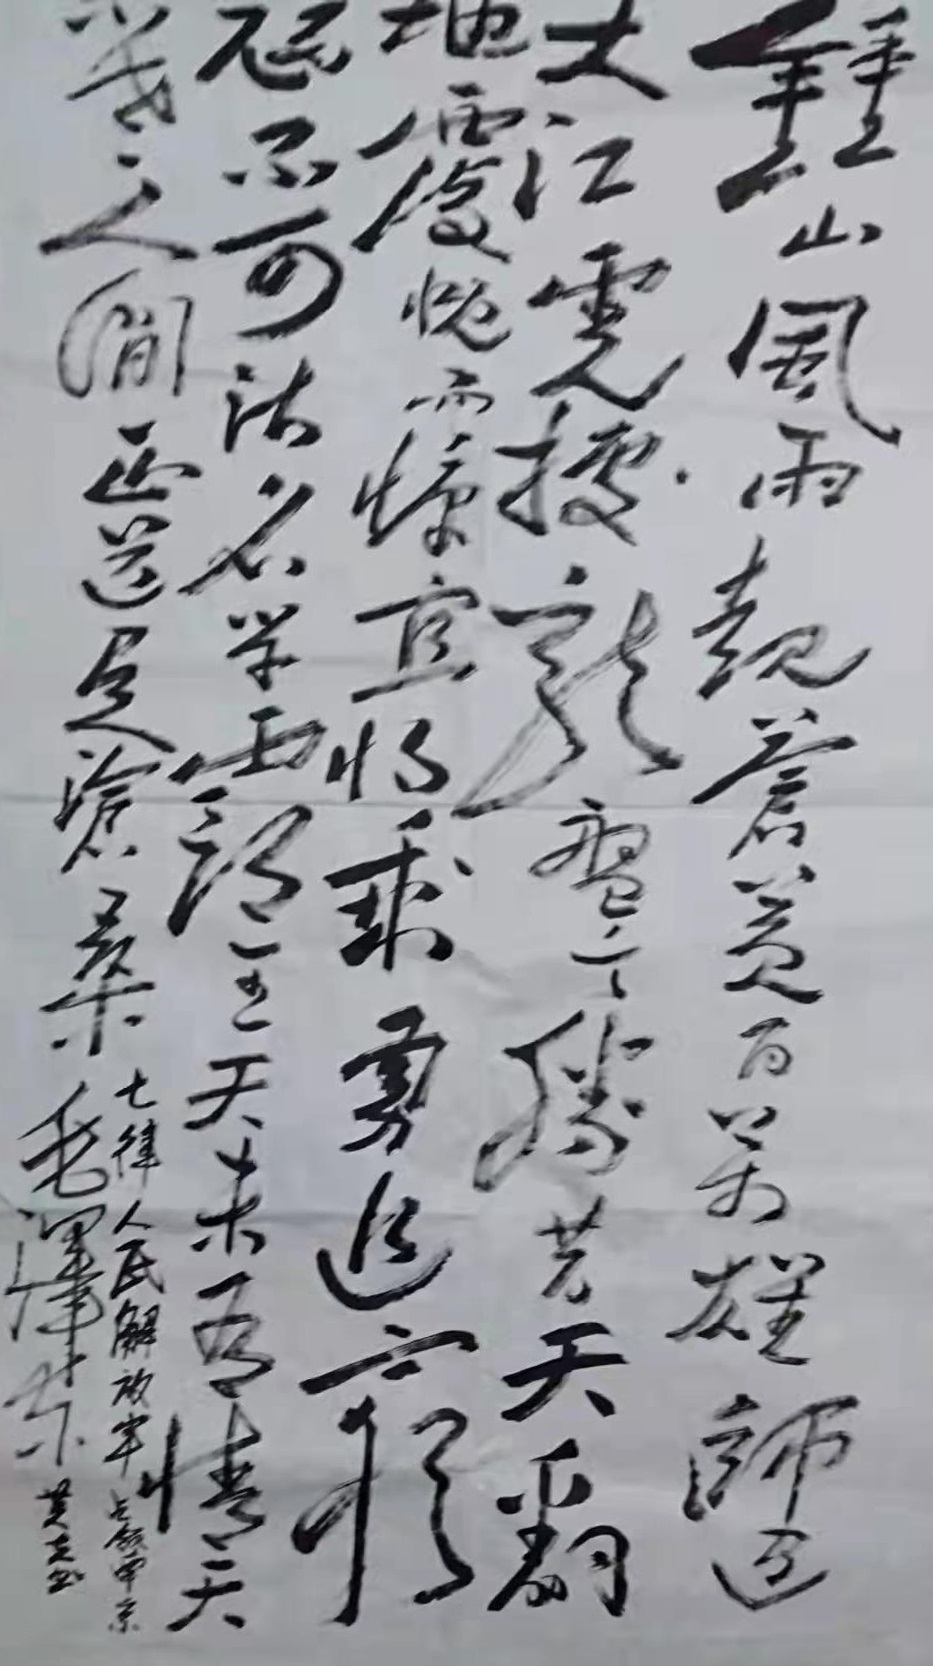 鍾山風雨起蒼黃百万雄師过
大江虎據龍盤今勝昔天翻
地覆慨而慷宜将剩勇追窮
寇不可沽名学霸王天若有情天
亦老人间正道是滄桑
七律人民解放军占领南京
毛澤东